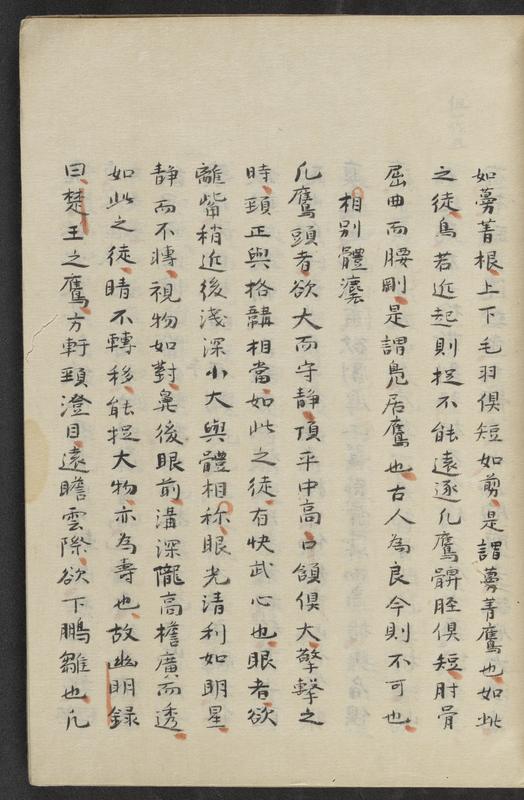 如蔓菁根上下毛羽俱短如剪是謂蔓菁鷹也如此
之徒鳥若近起則捉不能遠逐凡鷹髀脛俱短肘骨
屈曲而腰剛是謂鳧居鷹也古人為良今則不可也
相別體瘻
凡鷹頭者欲大而守静頂平中高口頷俱大擎擊之
時頸正與格韝相當如此之徒有快武心也眼者欲
離觜稍近後淺深小大與體相称眼光清利如明星
静而不轉視物如對鼻後眼前溝深隴高檐廣而透
如此之徒睛不轉移能捉大物亦為壽也故幽明録
曰楚王之鷹方軒頸澄目遠瞻雲際欲下鵬雛也凡